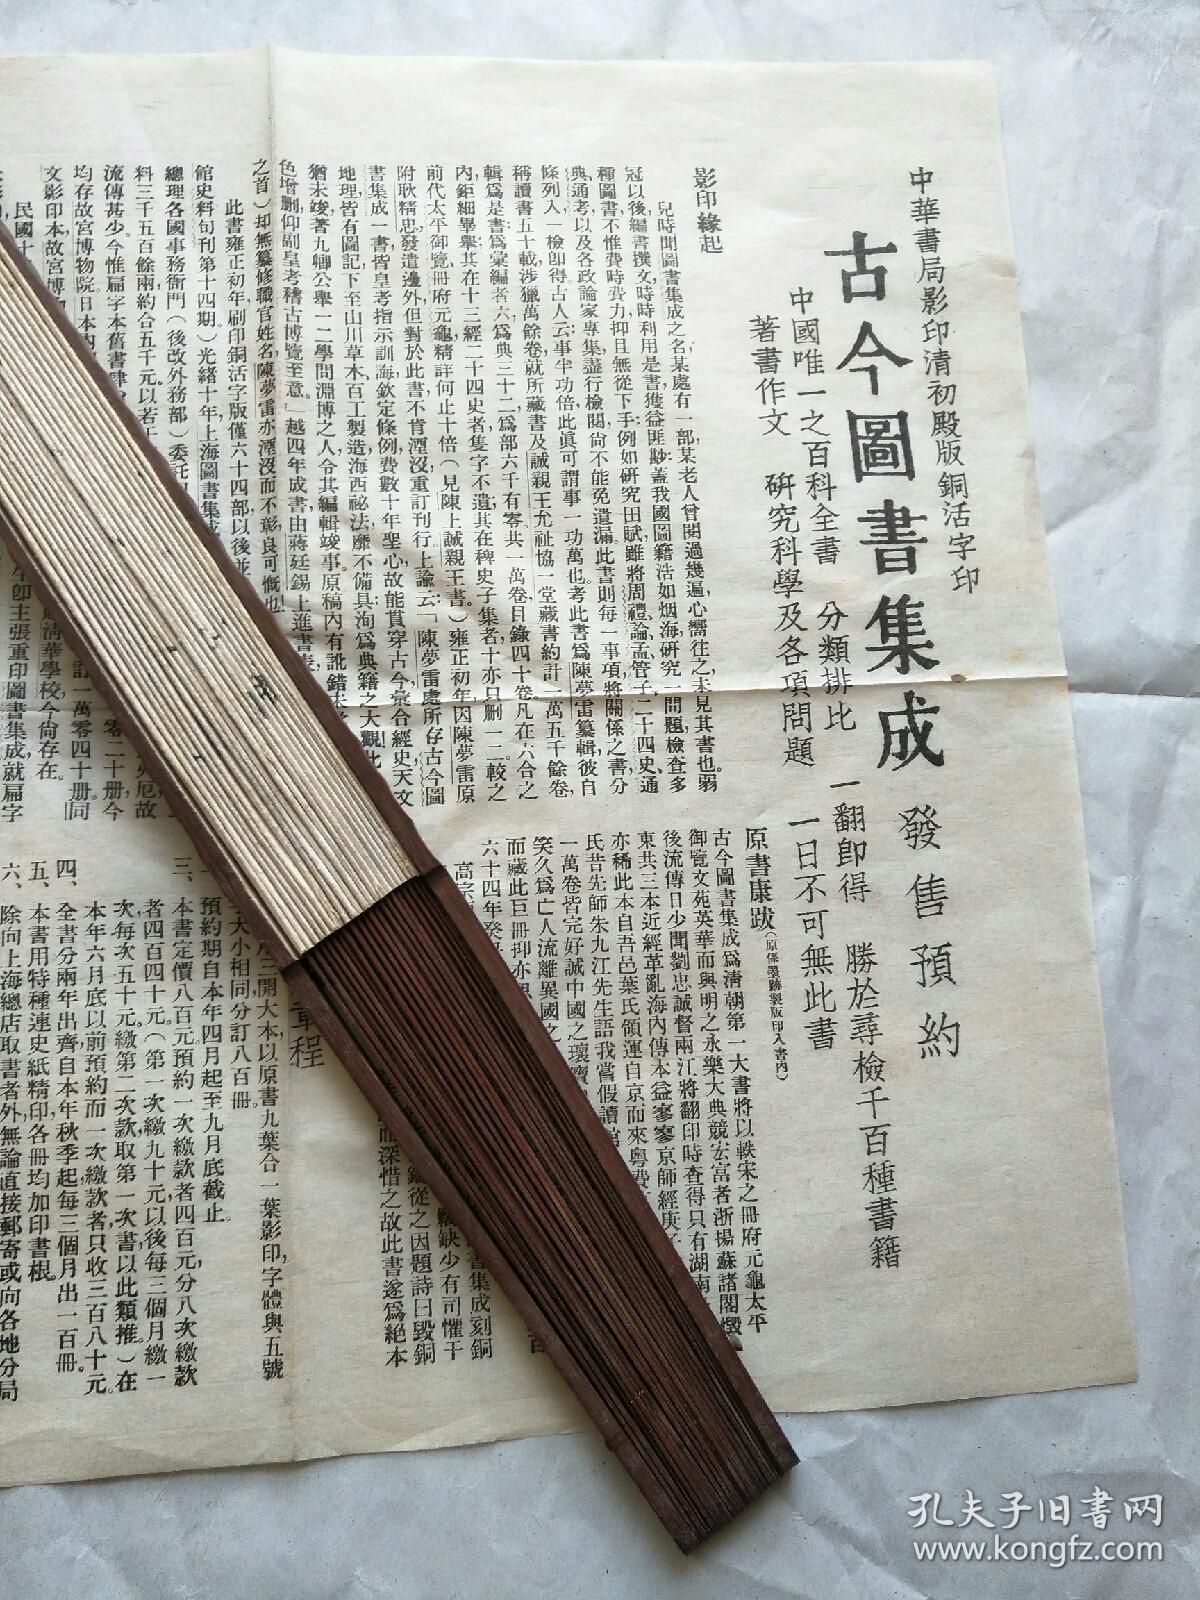 中華書局影印清初殿版銅活字印
古今圖書集成
發售預約
中國唯一之百科全書　分類排比　一翻卽得　勝於尋檢千百種書籍
著書作文　研究科學及各項問題　一日不可無此書
影印緣起
兒時聞圖書集成之名某處有一部某老人曾閱過幾遍心嚮往之未見其書也弱
冠以後編書撰文時時利用是書獲益匪尠蓋我國圖籍浩如烟海研究一問題檢查多
種圖書不惟費時費力抑且無從下手例如研究田賦雖將周禮論孟管子二十四史通
典通考以及各政論家專集盡行檢閱尚不能免遺漏此書則每一事項將關係之書分
條列入一檢卽得古人云事半功倍此眞可謂事一功萬也考此書爲陳夢雷纂輯彼自
稱讀書五十載涉獵萬餘卷就所藏書及誠親王允祉協一堂藏書約計一萬五千餘卷
輯爲是書爲彙編者六爲典三十二爲部六千有零共一萬卷目錄四十卷凡在六合之
內鉅細畢舉其在十三經二十四史者隻字不遺其在稗史子集者十亦只删一二較之
前代太平御覽册府元龜精詳何止十倍（見陳上誠親王書）雍正初年因陳夢雷原
附耿精忠發遣邊外但對於此書不肯湮沒重訂刊行上諭云「陳夢雷處所存古今圖
書集成一書皆皇考指示訓誨欽定條例費數十年聖心故能貫穿古今彙合經史天文
地理皆有圖記下至山川草木百工製造海西祕法靡不備具洵爲典籍之大觀此
猶未竣著九卿公舉一二學問淵博之人令其編輯竣事原稿內有訛錯未
色增删仰副皇考稽古博覽至意」越四年成書由蔣廷錫上進書表
之首）却無纂修職官姓名陳夢雷亦湮沒而不彰良可慨也
此書雍正初年刷印銅活字版僅六十四部以後並
館史料旬刊第十四期）光緒十年上海圖書集成
總理各國事務衙門（後改外務部）委託
料三千五百餘兩約合五千元以若干
流傳甚少今惟扁字本舊書肆
均存故宮博物院日本內
文影印本故宮博物
零二十册今
訂一萬零四十册同
清華學校今尚存在
卽主張重印圖書集成就扁字
民國十
原書康跋（原係墨跡製版印入書內）
古今圖書集成爲淸朝第一大書將以軼宋之冊府元龜太平
御覽文苑英華而與明之永樂大典競宏富者浙揚蘇諸閣燬
後流傳日少聞劉忠誠督兩江將翻印時查得只有湖南
東共三本近經革亂海內傳本益寥寥京師經庚子
亦稀此本自吾邑葉氏領運自京而來粵費
氏昔先師朱九江先生語我當假讀
一萬卷皆完好誠中國之瓌寶
笑久爲亡人流離異國之
而藏此巨册抑亦
六十四年癸
高宗
書集成刻銅
缺少有司懼干
從之因題詩曰毀銅
而深惜之故此書遂爲絕本
章程
三開大本以原書九葉合一葉影印字體與五號
大小相同分訂八百冊
預約期自本年四月起至九月底截止
三、本書定價八百元預約一次繳款者四百元分八次繳款
者四百四十元（第一次繳九十元以後每三個月繳一
次每次五十元繳第二次款取第一次書以此類推）在
本年六月底以前預約而一次繳款者只收三百八十元
四、全書分兩年出齊自本年秋季起每三個月出一百冊
五、本書用特種連史紙精印各冊均加印書根
六、除向上海總店取書者外無論直接郵寄或向各地分局
孔夫子旧書网
www.kongfz.com